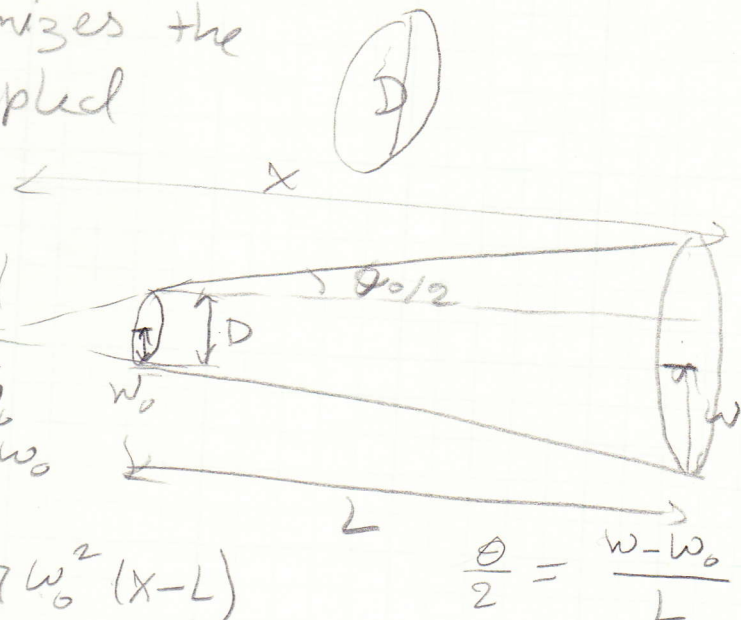 nizes the
pled
D
X
θ₀/2
D
W₀
W
W₀
L
W₀² (X-L)
θ/2 = W-W₀/L